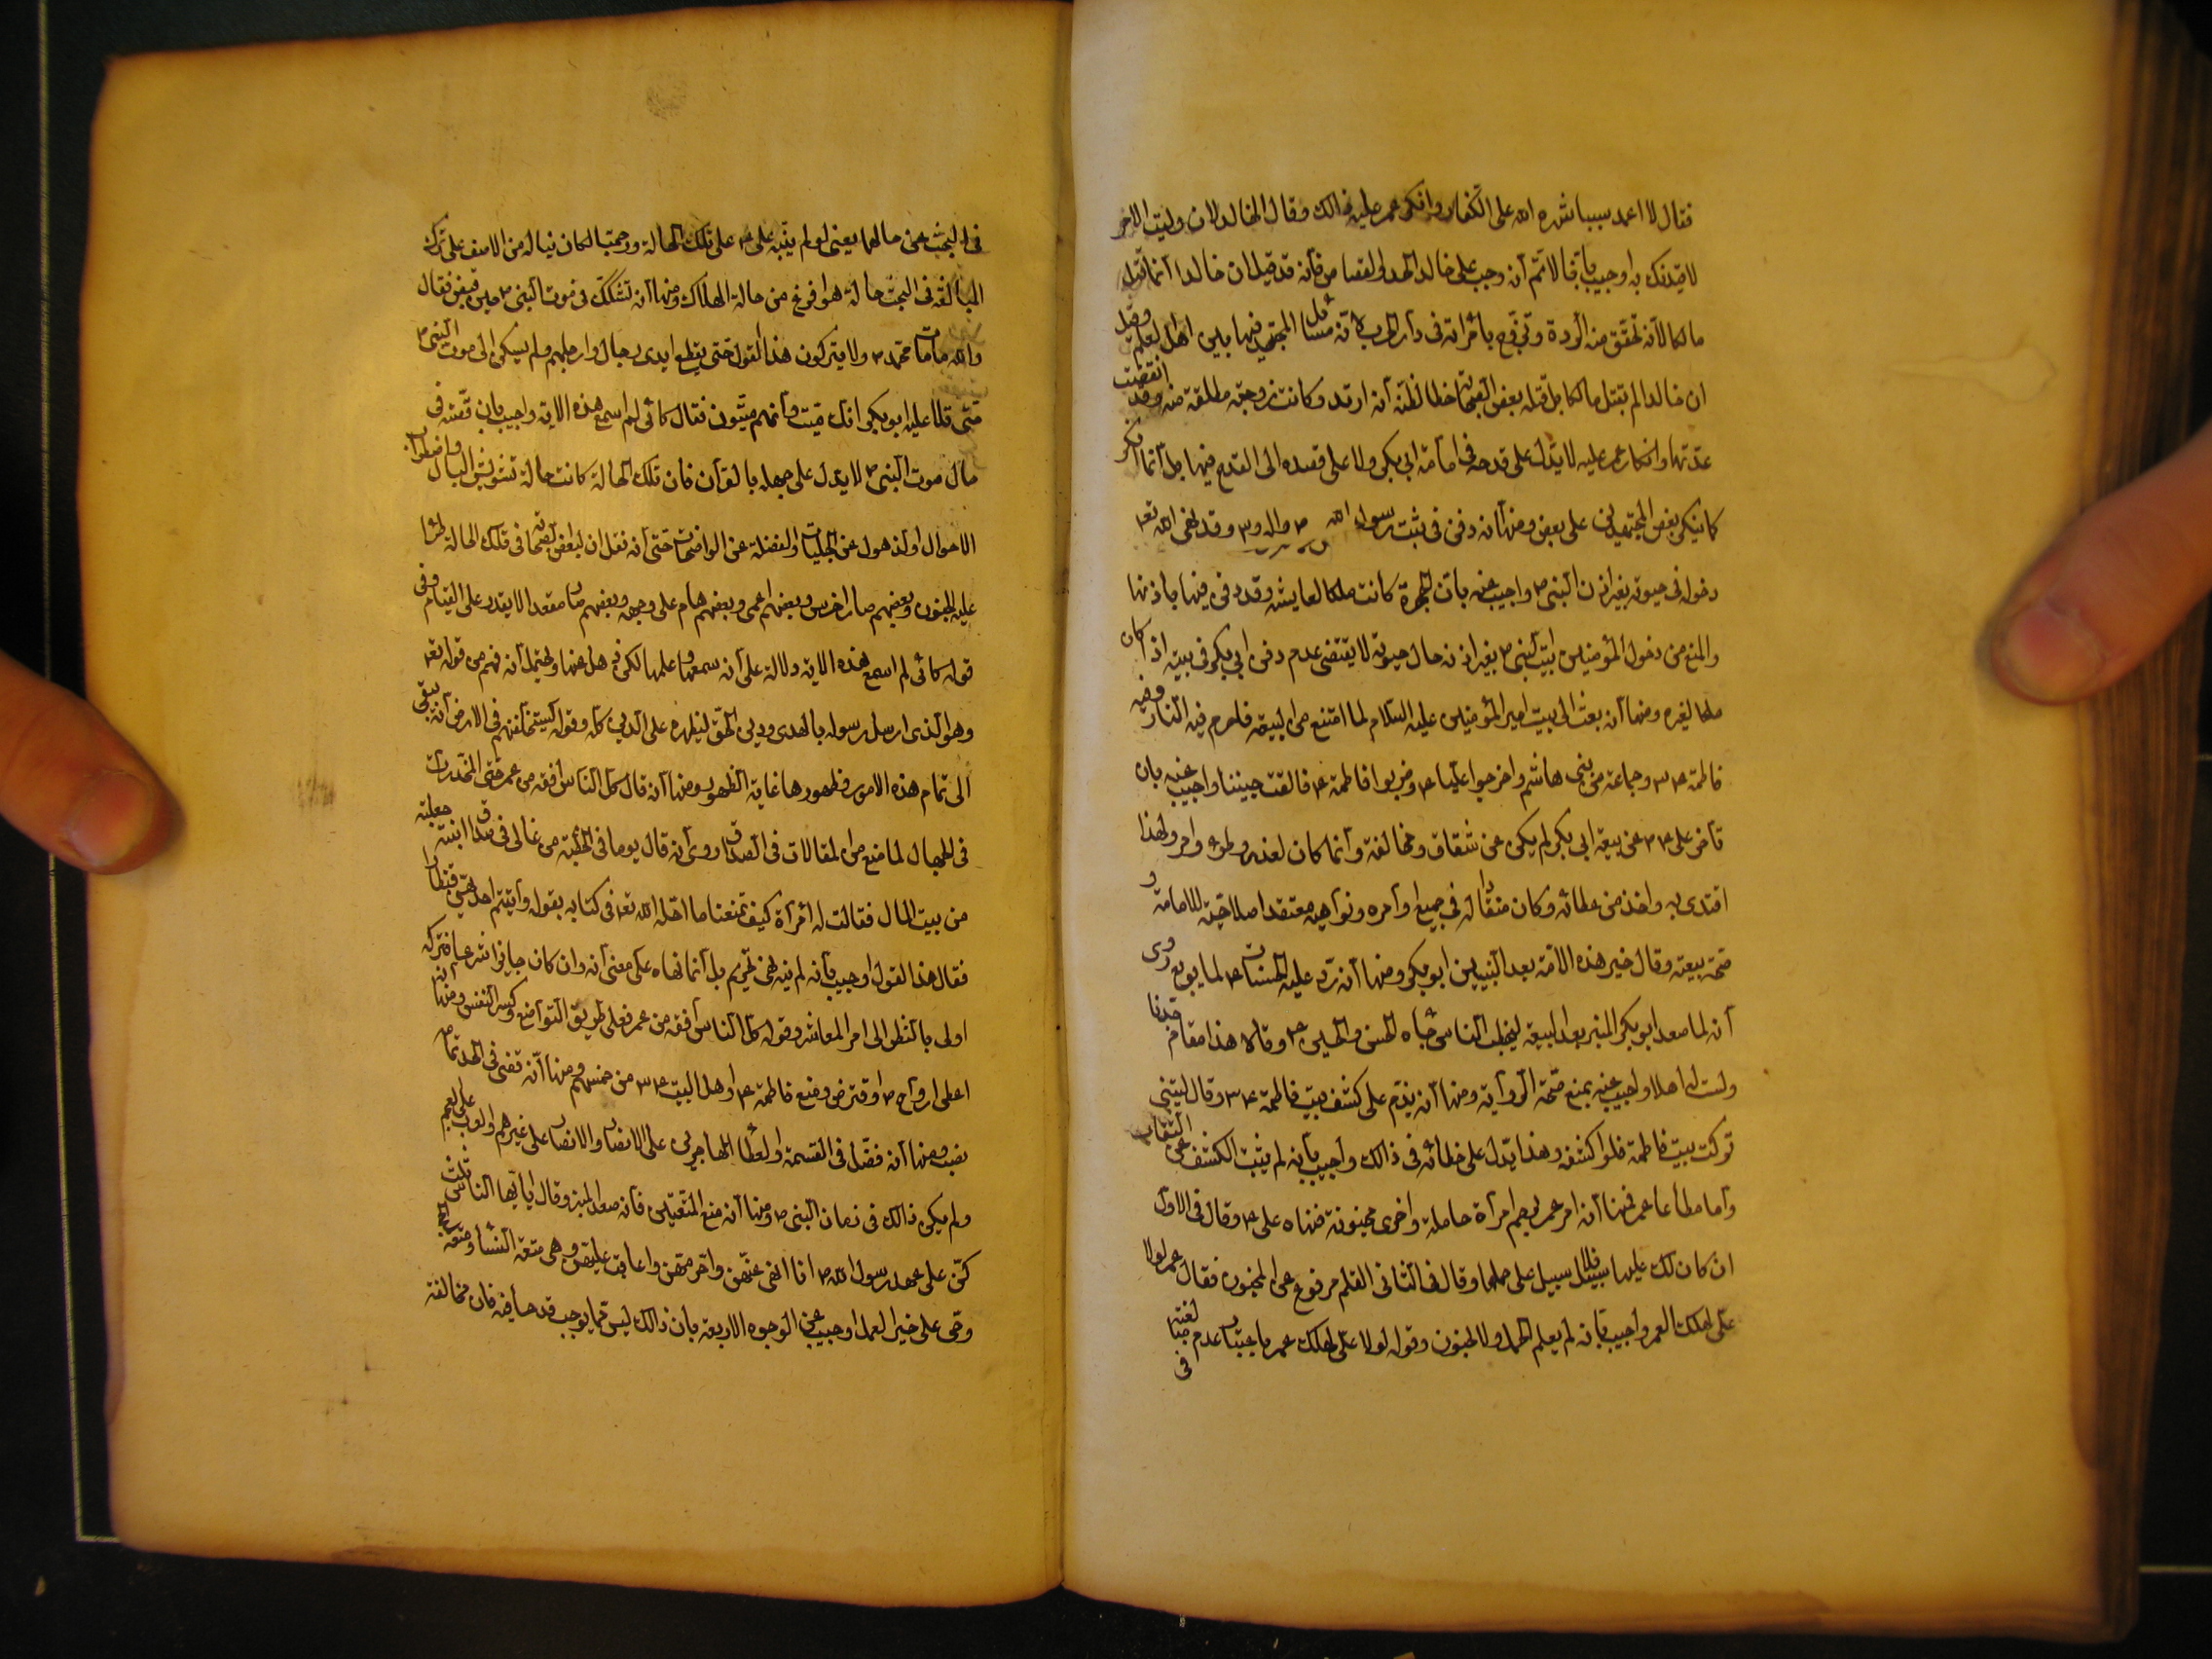 فقال لا اغمد سيفا شهره الله على الكفار وانكر عمر عليه ذالك وقال لخالد لان وليت الامر
لاقيدنك به واجيب بانا لا نم انه وجب على خالد الحد والقصاص فانه قد قيل ان خالدا انما قتل
مالكا لانه تحقق منه الردة وتزوج بامراته فى دار الحرب لانه من مسائل المجتهد فيها بين اهل العلم وقيل
ان خالدا لم يقتل مالكا بل قتله بعض الصحابة خطا لظنه انه ارتد وكانت زوجته مطلقة منه وقد انقضت
عدتها وانكار عمر عليه لا يدل على قدحه فى امامة ابى بكر ولا على قصده الى القدح فيها بل انما انكر
كما ينكر بعض المجتهدين على بعض ومنها انه دفن فى بيت رسول الله ص واله وقد نهى الله تعا
دخوله فى حيوته بغير اذن النبى ص واجيب عنه بان الحجرة كانت ملكا لعايشه وقد دفن فيها باذنها
والمنع من دخول المؤمنين بيت النبى ص بغير اذنه حال حيوته لا يقتضى عدم دفن ابى بكر فى بيته اذ كان
ملكا لغيره ومنها انه بعث الى بيت امير المؤمنين عليه السلام لما امتنع من البيعة فاضرم فيه النار وفيه
فاطمة ع وجماعة من بنى هاشم واخرجوا عليا ع وضربوا فاطمة ع فالقت جنينا واجيب عنه بان
تاخر على ع عن بيعة ابى بكر لم يكن عن شقاق ومخالفة وانما كان لعذر وطرء امر ولهذا
اقتدى به واخذ من عطائه وكان منقادا له فى جميع اوامره ونواهيه معتقدا صلاحيته للامامة و
صحة بيعته وقال خير هذه الامة بعد النبيين ابو بكر ومنها انه رد عليه الحسنان ع لما بويع روى
انه لما صعد ابو بكر المنبر بعد البيعة ليخطب الناس جاءه الحسن والحسين ع وقالا هذا مقام جدنا
ولست له اهلا واجيب عنه بمنع صحة الرواية ومنها انه ندم على كشف بيت فاطمة ع وقال ليتنى
تركت بيت فاطمة فلم اكشفه وهذا يدل على خطائه فى ذالك واجيب بانه لم يثبت الكشف عن الثقات
واما مطاعن عمر فمنها انه امر عمر برجم امرأة حاملة واخرى مجنونة فنهاه على ع وقال فى الاول
ان كان لك عليها سبيل فلا سبيل على حملها وقال فى الثانى القلم مرفوع عن المجنون فقال عمر لولا
على لهلك العمر واجيب بانه لم يعلم الحمل ولا الجنون وقوله لولا على لهلك عمر باعتبار عدم مبالغته
فى
فى البحث عن حالهما يعنى لو لم ينبه على ع على تلك الحالة ورجمتا لكان يناله من الاسف على ترك
المبالغة فى البحث حالة هو افرغ من حالة الهلاك ومنها انه تشكك فى موت النبى ص حين قبض فقال
والله ما مات محمد ص ولا يتركون هذا القول حتى يقطع ايدى رجال وارجلهم ولم يسكن الى موت النبى ص
حتى تلا عليه ابو بكر انك ميت وانهم ميتون فقال كانى لم اسمع هذه الاية واجيب بان قصته فى
حال موت النبى ص لا يدل على جهله بالقرآن فان تلك الحالة كانت حالة تشويش البال واضطراب
الاحوال والذهول عن الجليات والغفلة عن الواضحات حتى انه نقل ان لبعض الصحابة فى تلك الحالة طرا
عليه الجنون وبعضهم صار اخرس وبعضهم اعمى وبعضهم هام على وجهه وبعضهم صار مقعدا لا يقدر على القيام وفى
قوله كانى لم اسمع هذه الاية دلالة على انه سمعها وعلمها لكن ذهل عنها ويحتمل انه فهم من قوله تعا
وهو الذى ارسل رسوله بالهدى ودين الحق ليظهره على الدين كله وقوله ليستخلفنهم فى الارض انه يبقى
الى تمام هذه الامور وظهورها غاية الظهور ومنها انه قال كل الناس افقه من عمر حتى المخدرات
فى الحجال لما منع من المغالات فى الصداق روى انه قال يوما فى الخطبة من غالى فى صداق ابنته جعلته
من بيت المال فقالت له امرأة كيف تمنعنا ما احله الله تعا فى كتابه بقوله وآتيتم احديهن قنطارا
فقال هذا القول واجيب بانه لم ينه نهى تحريم بل انما نهاه على معنى انه وان كان جايزا شرعا فتركه
اولى بالنظر الى امر المعاش وقوله كل الناس افقه من عمر فعلى طريق التواضع وكسر النفس ومنها انه
اعطى ازواج ص واقترض ومنع فاطمة ع واهل البيت ع من خمسهم ومنها انه قضى فى الحد بمأة
قضيب ومنها انه فضل فى القسمة والعطاء المهاجرين على الانصار والانصار على غيرهم والعرب على العجم
ولم يكن ذالك فى زمان النبى ص ومنها انه منع المتعتين فانه صعد المنبر وقال ايا ايها الناس ثلث
كن على عهد رسول الله ص انا انهى عنهن واحرمهن واعاقب عليهن وهى متعة النساء ومتعة الحج
وحى على خير العمل واجيب عن الوجوه الاربعة بان ذالك ليس مما يوجب قدحا فيه فان مخالفة